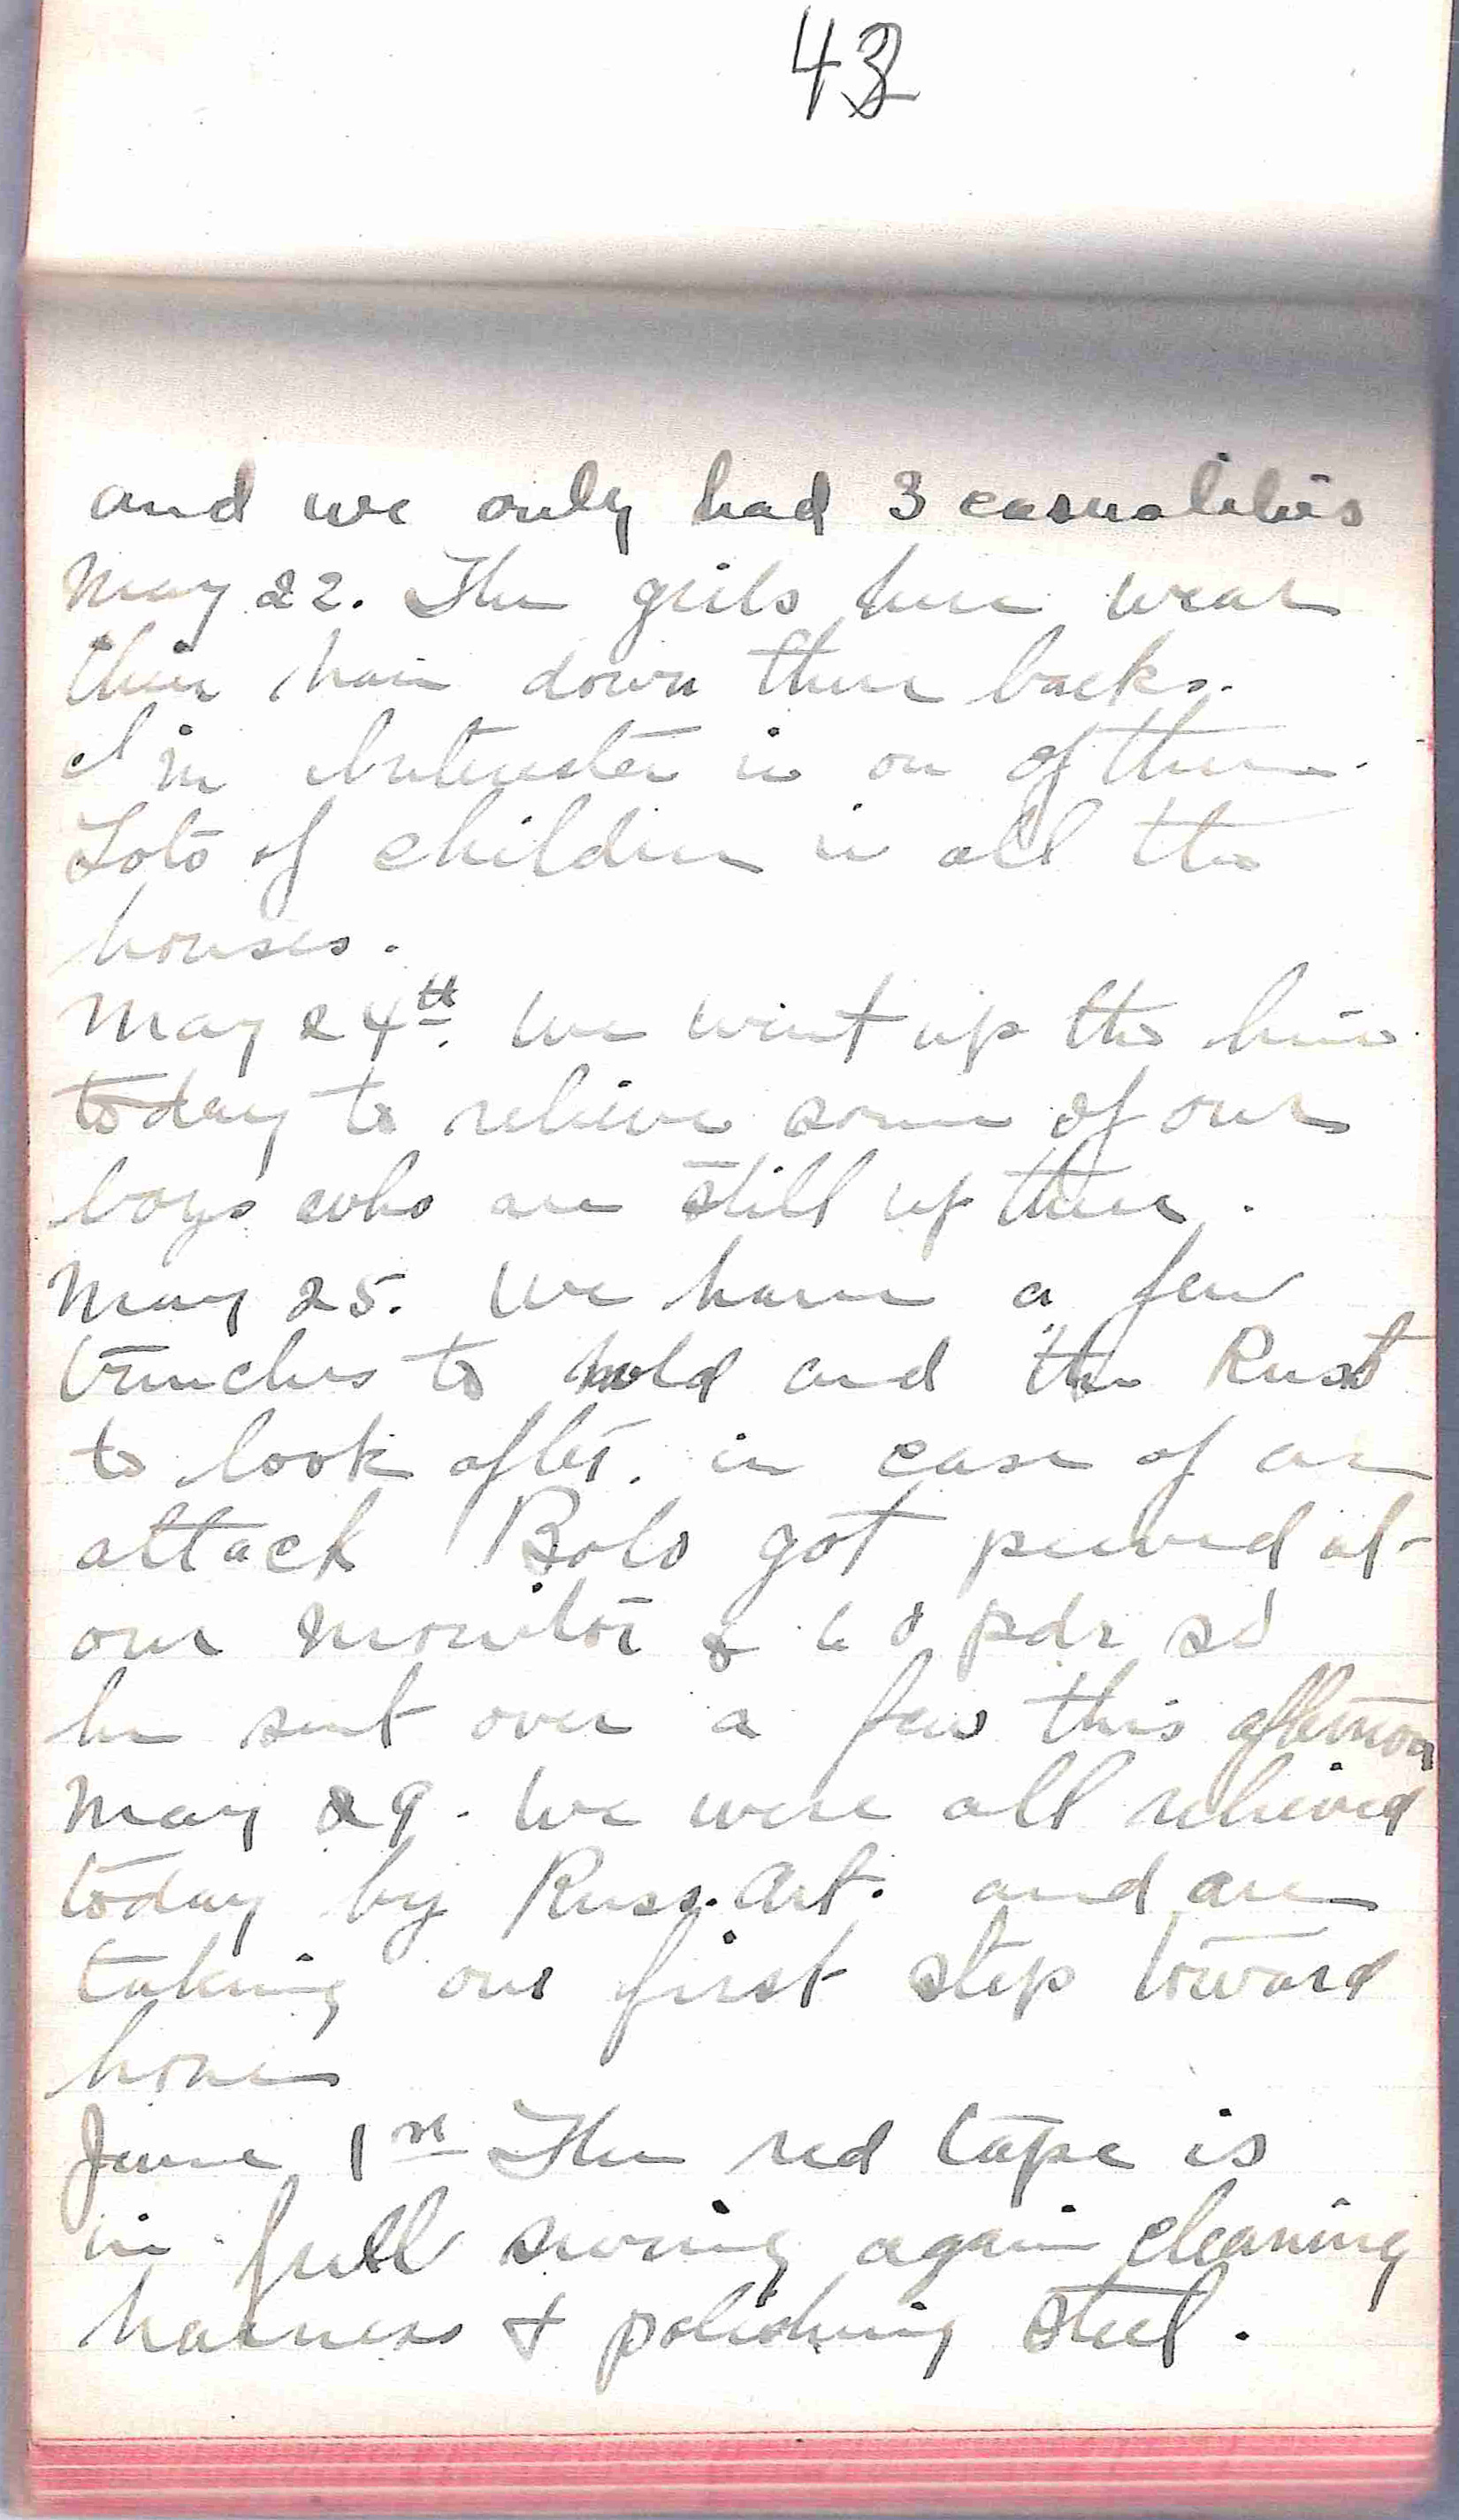 43
and we only had 3 casualities
May 22. The girls here wear
their hair down there backs.
I'm interested in on of them.
Lots of children in all the
houses.
May 24th. We went up the line
today to relieve some of our
boys who are still up there.
May 25. We have a few
trenches to hold and the Russ
to look after. in case of an
attack Bolo got peeved at
our monitor & 60 pdr so
he sent over a few this afternoon
May 29. We were all relieved
today by Russ. Art. and are
taking our first step toward
home
June 1st The red tape is
in full swing again cleaning
harness & polishing steel.